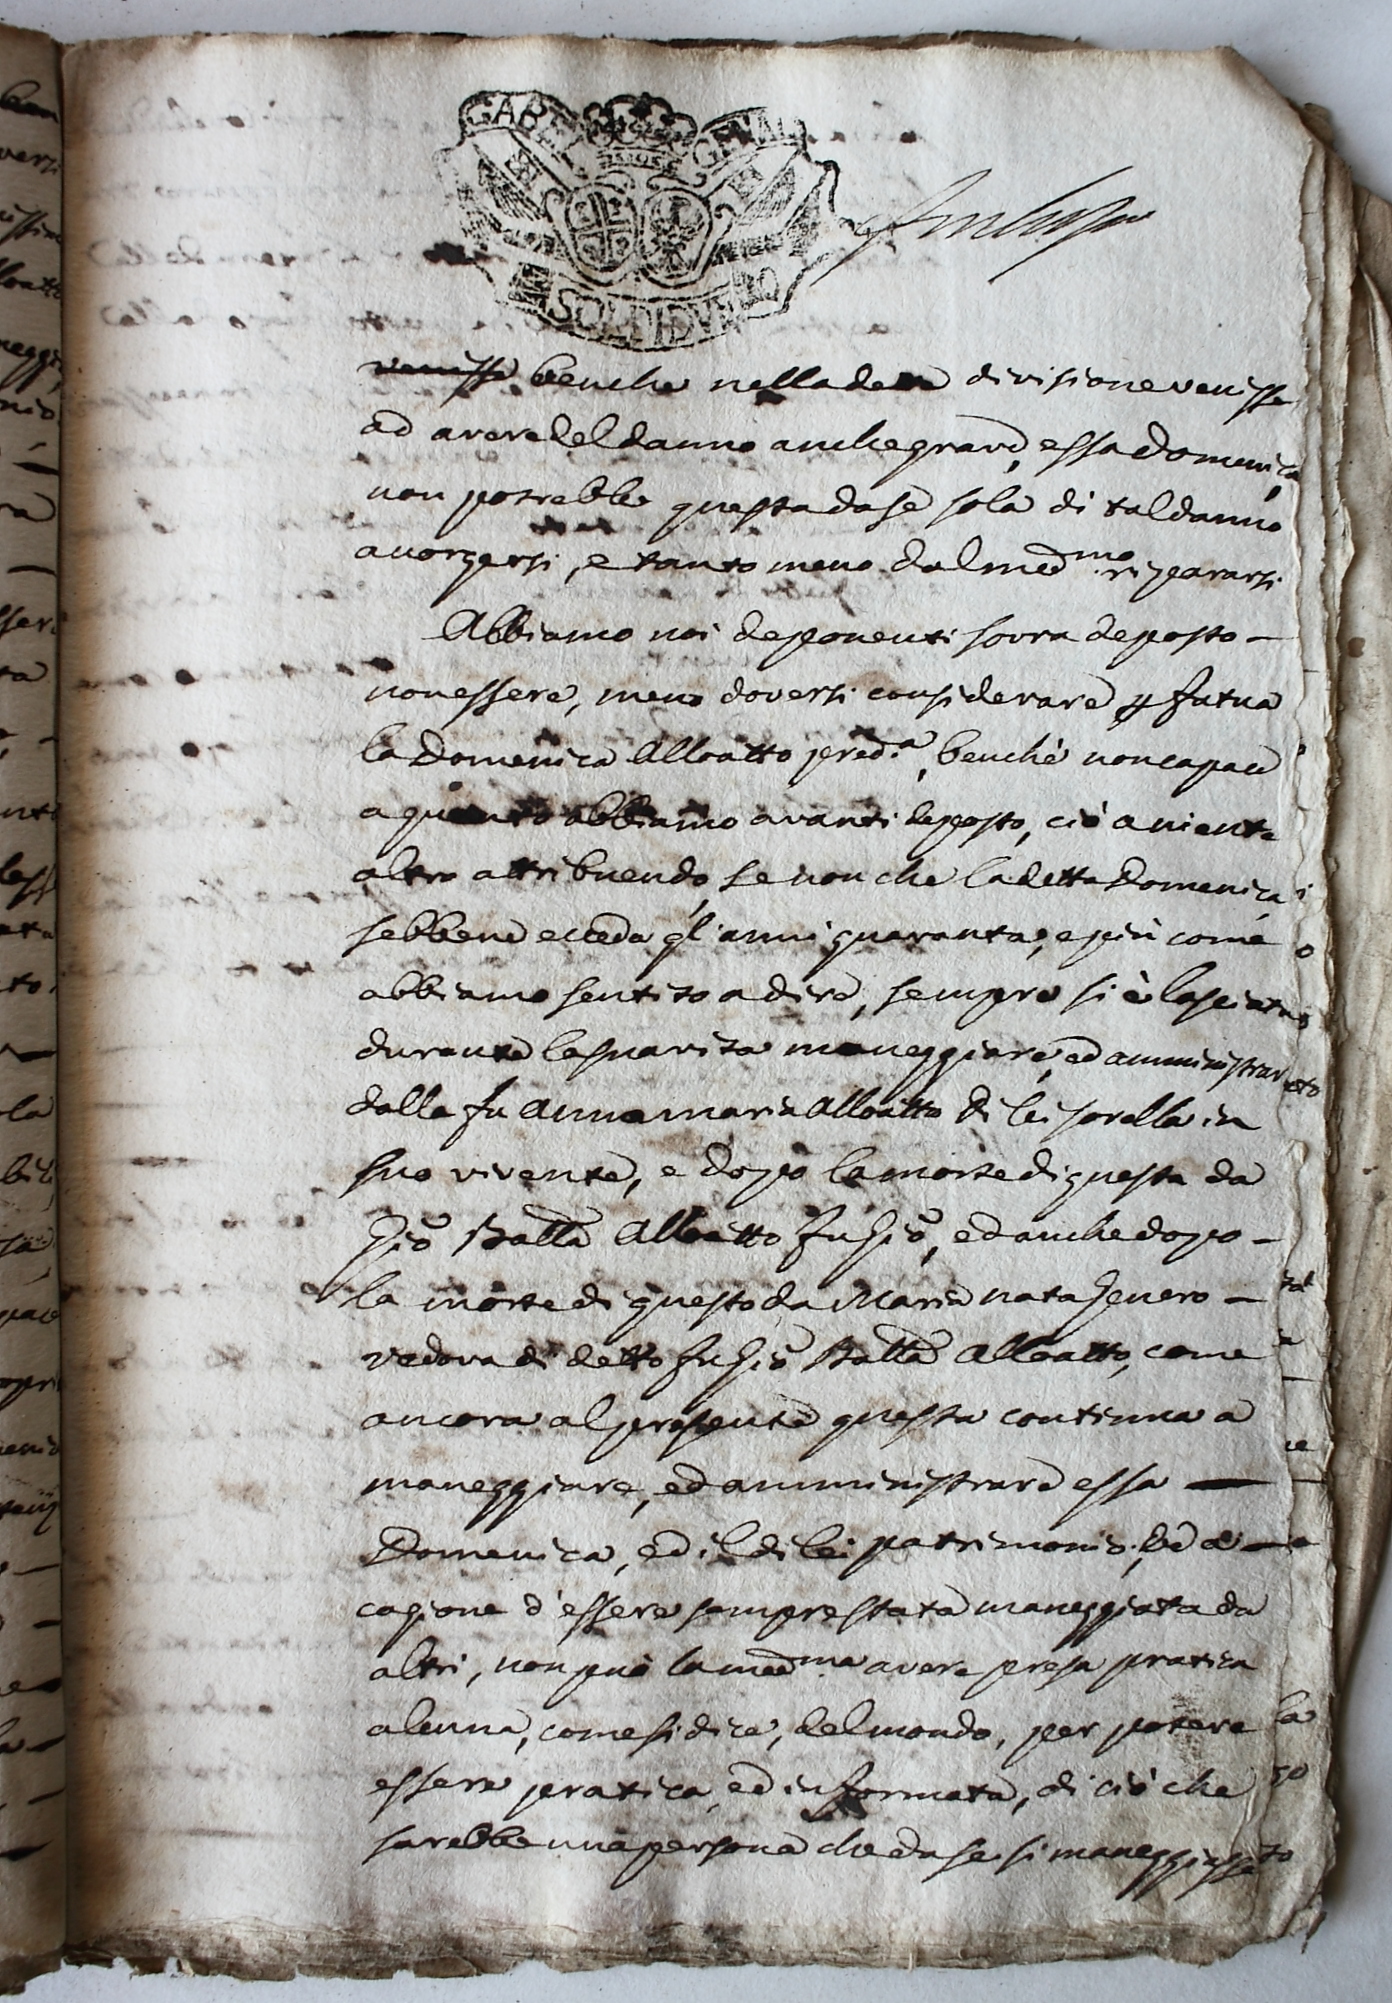 GAB GNAL
SOLDI DVE
venisse benche nella detta divisione venisse
ad avere del danno anche grave, essa Domenica
non potrebbe questa da se sola di tal danno
avorgersi, e tanto meno dal med.mo ripararsi
Abbiamo noi deponenti sovra deposto –
non essere, meno doversi considerare p fatua
la Domenica Alloatto pred.a, benchè non capace
a quanto abbiamo avanti deposto, ciò a niente
altro attribuendo, se non che la detta Domenica
sebbene ecceda gl'anni quaranta, e più come
abbiamo sentito a dire, sempre si è lasciata
durante la sua vita maneggiare, ed amministrare
dalla fu Anna Maria Alloatto di lei sorella in
suo vivente, e dopo la morte di questa da
Gio Batta Alloatto fu Gio, ed anche dopo –
la morte di questo da Maria nata Genero –
vedova di detto fu Gio Batta Alloatto, come
ancora al presente questa continua a
maneggiare, ed amministrare essa —
Domenica, ed il di lei patrimonio, ed a —
cagione d'essere sempre stata maneggiata da
altri, non può la med.ma avere presa pratica
alcuna, come si dice, del mondo, per potere
essere pratica, ed informata, di ciò che
sarebbe una persona che da se si maneggiasse